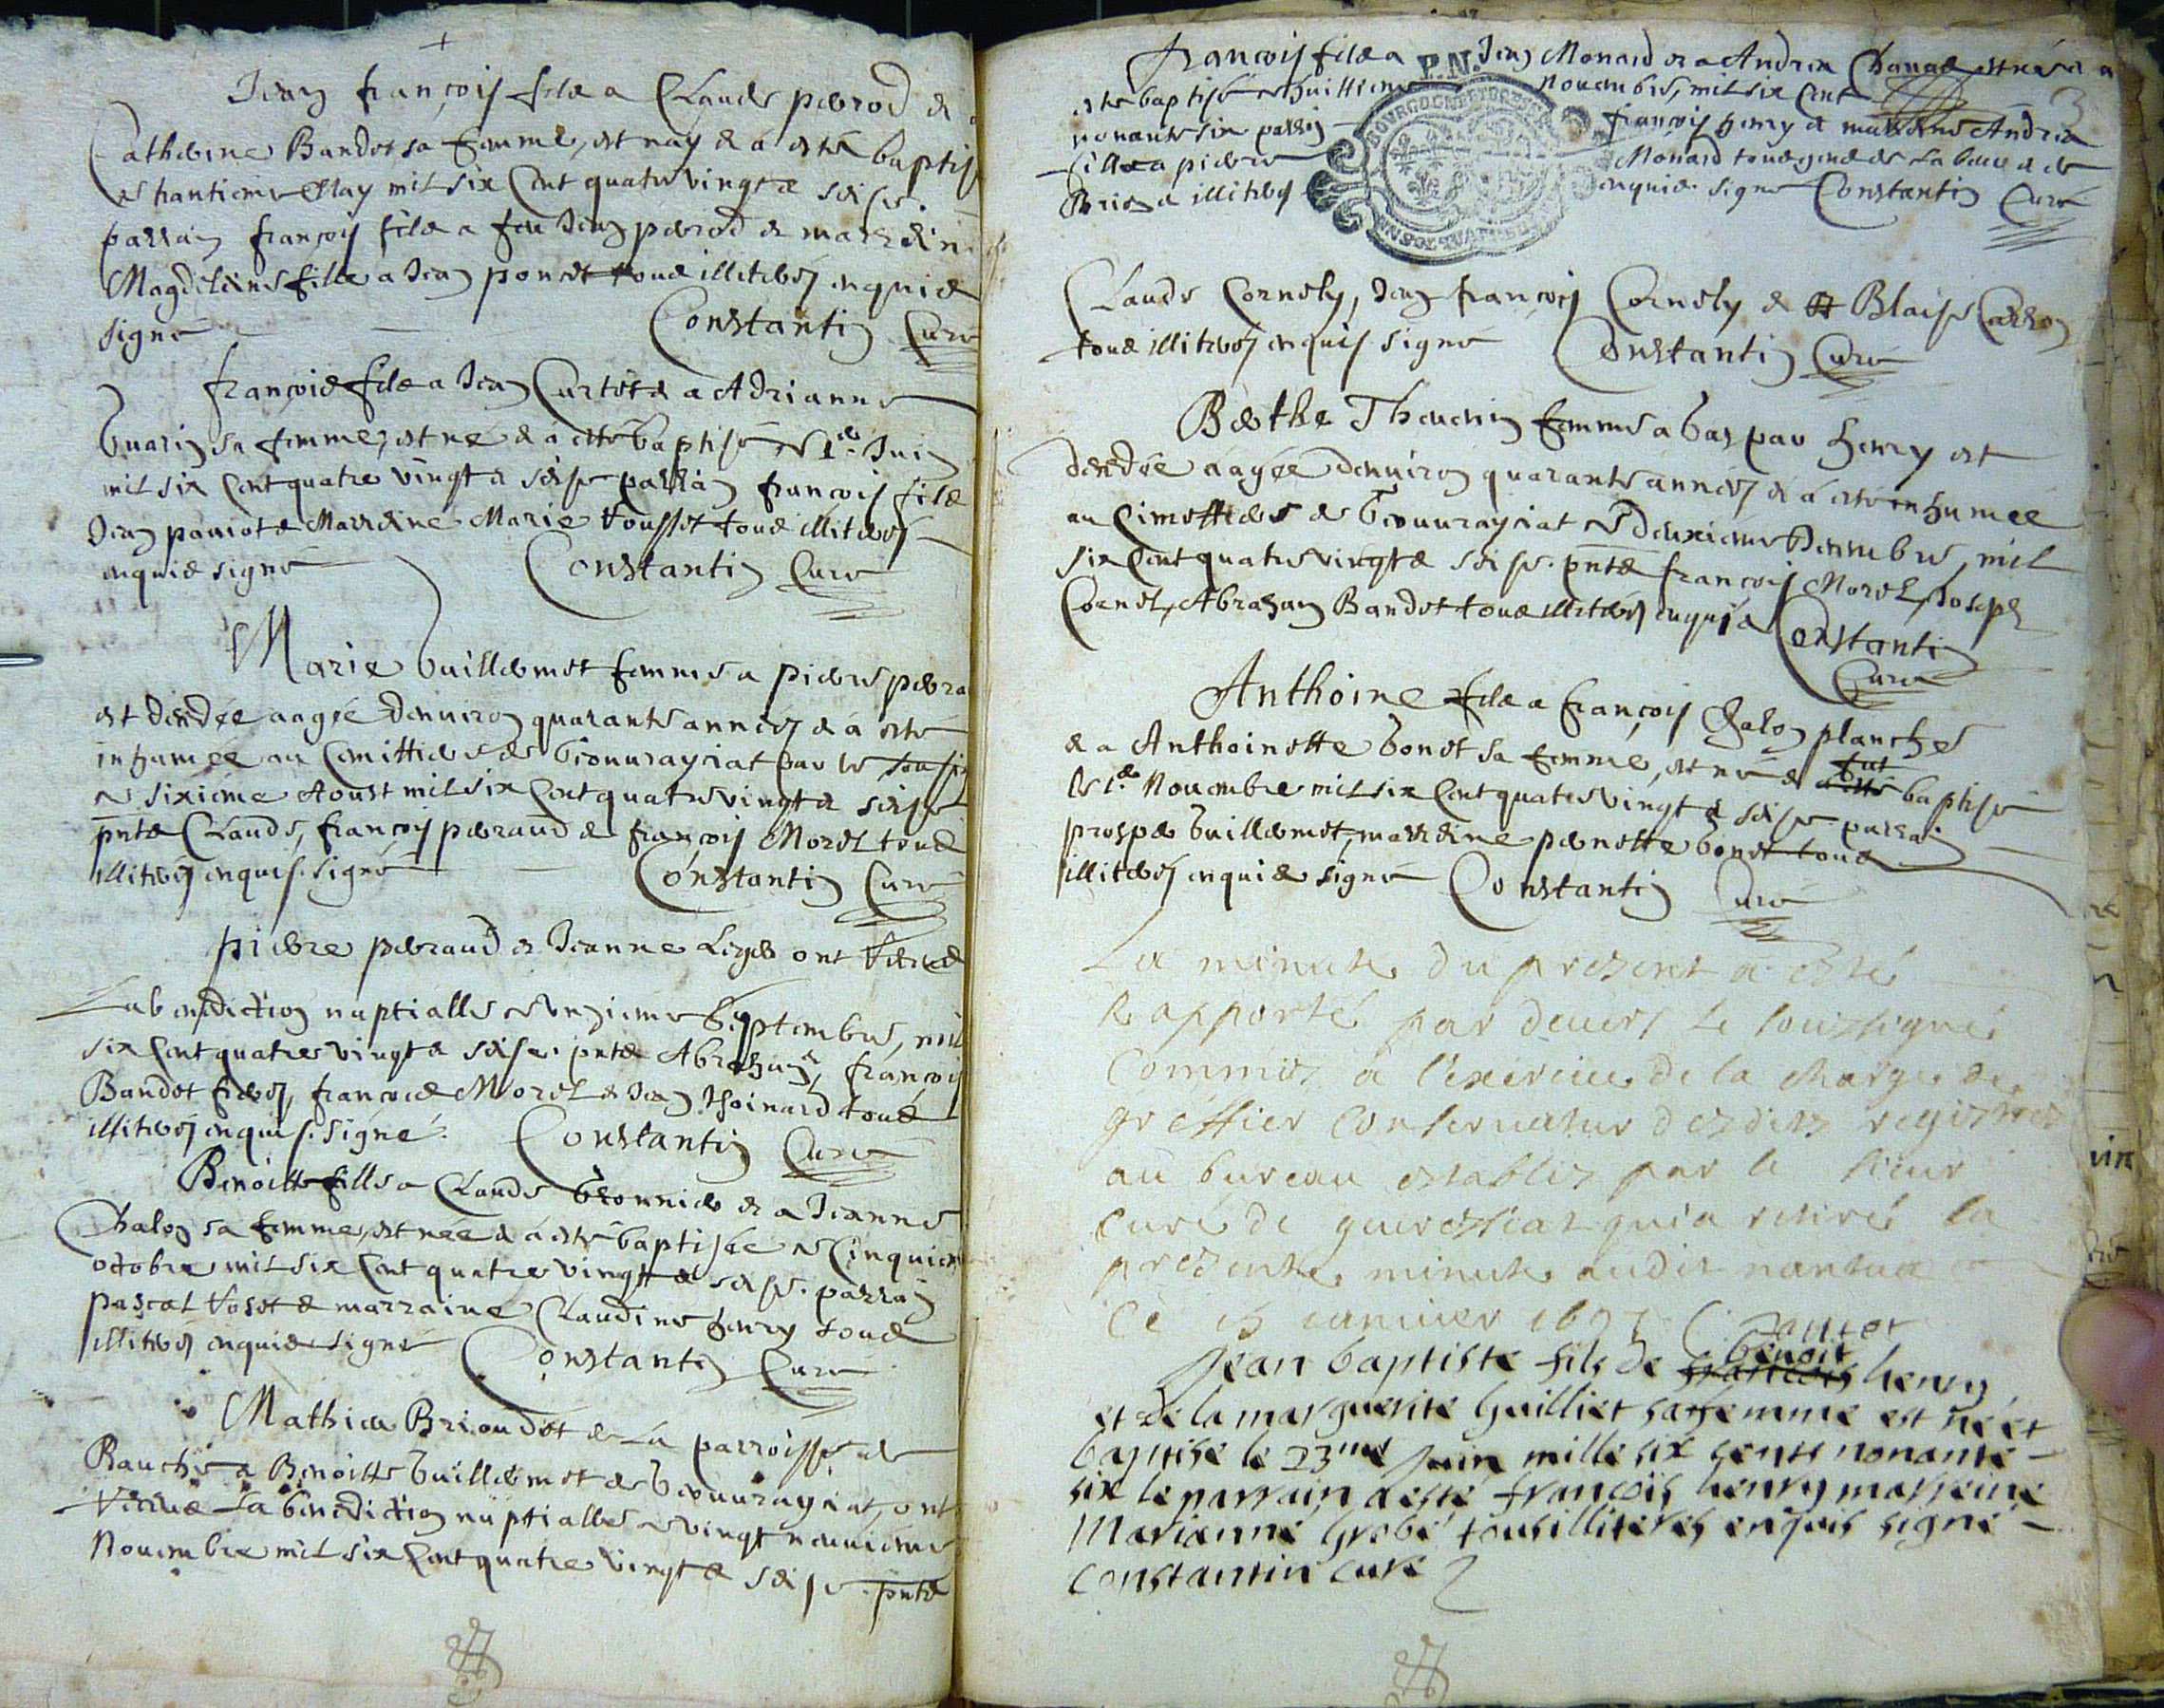 Jean françois filz a Claude perrod &
Catherine Bandet sa femme, est nay & a esté baptisé
le huantieme May mil six Cent quatre vingt & seise.
parrain françois filz a feu Jean perrod & marreine
Magdelaine fille a Jean poncet tous illiteres enquis
signé Constantin Curé
françois filz a Jean Curtet & a Adrianne
Guarin sa femme, est né & a esté baptisé le 1er. Juin
mil six Cent quatre vingt & seise parrain françois filz
Jean paniot & Marreine Marie tousset tous illiteres
enquis signé Constantin Curé
Marie Vuillermet femme a pierre perra
est decedée aagée denviron quarante années & a esté
inhumée au Cimettiere de Gevurayciat par le soussig
le sixieme Aoust mil six Cent quatre vingt & seise
pnts Claude, françois perraud & françois Morel tous
illiteres enquis. signé Constantin Curé
pierre perraud & Jeanne Leger ont receus
La benediction nuptialle le unzieme Septembre, mil
six Cent quatre vingt & seise. pnts Abraham & françois
Bandet freres, françois Morel & Jean Thoinard tous
illiteres enquis. signé. Constantin Curé
Benoitte fille a Claude Bronnier & a Jeanne
Chalon sa femme, est née & a esté baptisée le Cinquiem
octobre mil six Cent quatre vingt & seise. parrain
pascal Voset & marraine Claudine henry tous
illiteres enquis signé Constantin Curé
Mathieu Brioudet de La parroisse de
& Benoitte Vuillermet de Gevurayciat, ont
receus La benediction nuptialle le vingt neuvieme
Novembre mil six Cent quatre vingt & seise. pnts
françois filz a Jean Monard & a Andrea est né & a
esté baptisé le huittieme Novembre, mil six Cent
nonante six parrain françois henry & marreine Andrea
fille a pierre Monard tous de La
illiteres enquis. signé Constantin Curé
P.N.
BOURGOGNE ET BRESSE
3
Claude Cornely, Jean françois Cornely & Blaise Carron
tous illiteres enquis signé Constantin Curé
Berthe Thevenin femme a Gaspar henry est
decedée aagée denviron quarante années & a esté inhumée
au Cimettiere de Gevurayciat le deuxieme Decembre, mil
six Cent quatre vingt & seise. pnts françois Morel, Joseph
Cornel, Abraham Bandet tous illiteres enquis Constantin
Curé
Anthoine filz a françois Jalon planches
& a Anthoinette bonet sa femme, est né & fut a esté baptisé
le 1er. Novembre mil six Cent quatre vingt & seise. parrain
prosper Vuillermet, marreine pernette bonet tous
illiteres enquis signé Constantin Curé
La minute du present a esté
Rapporté par devers Le soussigné
Commis a l'exercice de la charge de
greffier Conservateur desdits registres
au bureau establis par le sieur
curé de gevressiat qui a retiré la
presente minute audit nantua
Ce 15 janvier 1697
Jean baptiste fils de françois benoit henry
et de la marguerite guilliet sa femme est né et
baptise le 23me Juin mille six cents nonante
six le parrain a este francois henry marreine
Marianne Grobe tous illiteres enquis signé
Constantin curé